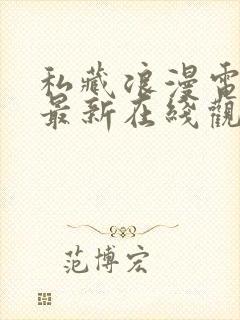 私藏浪漫電
最新在綫觀
范博宏